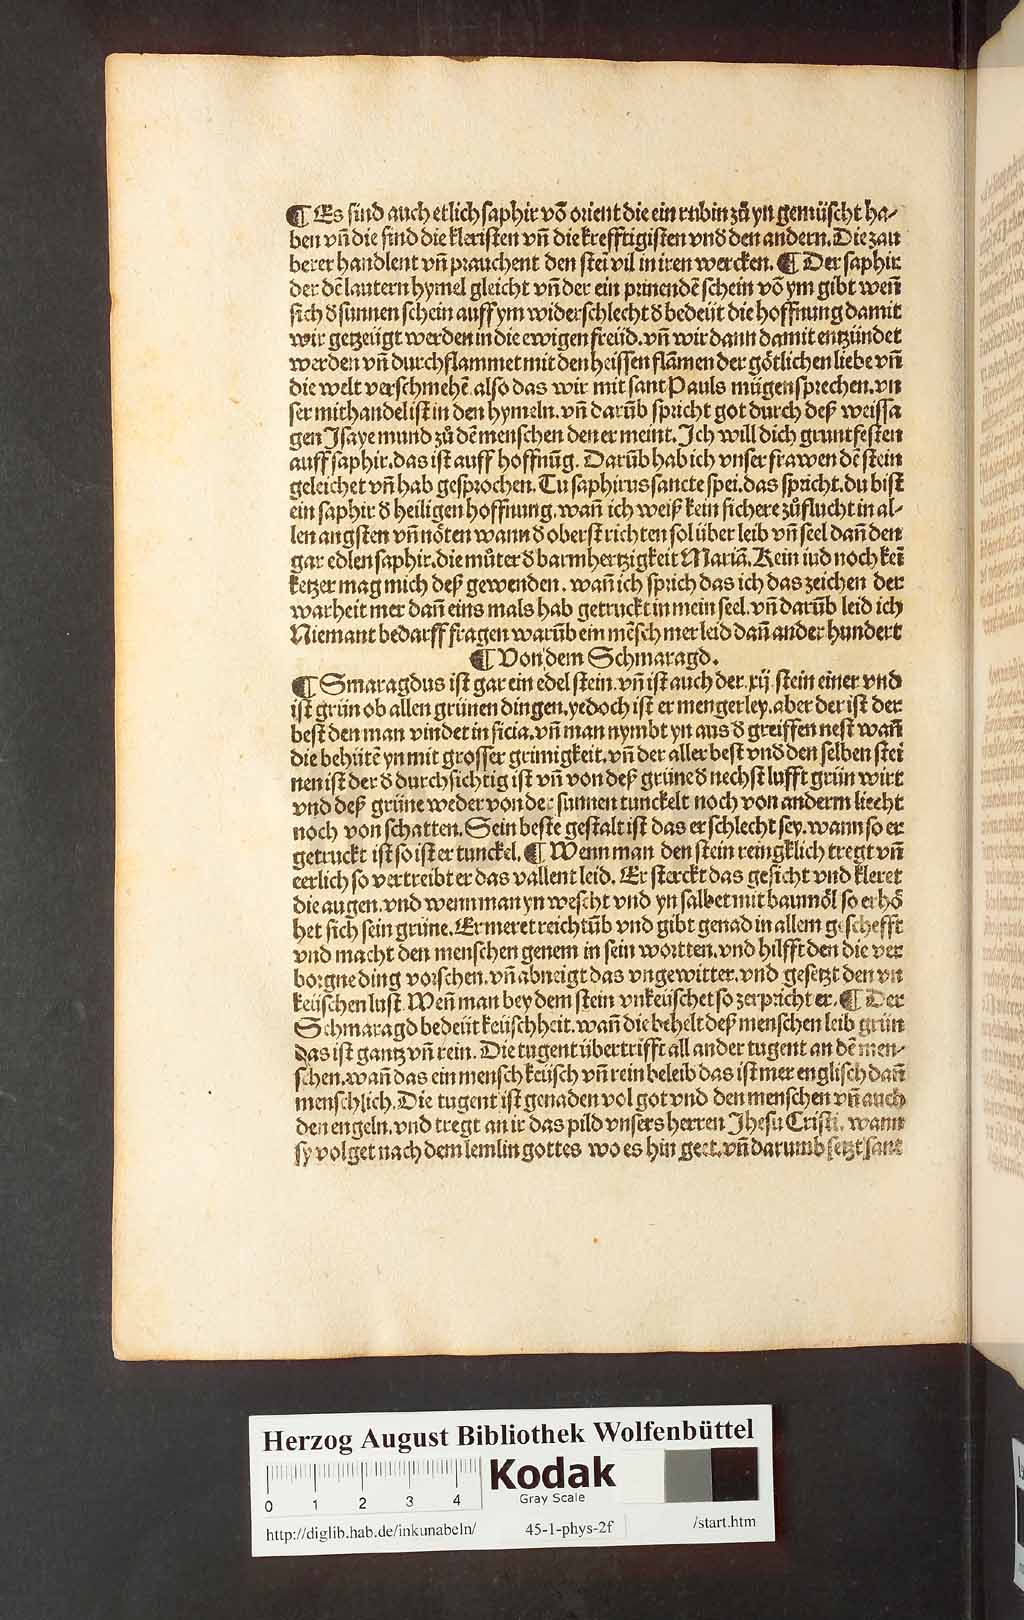 ¶ Es sind auch etlich saphir võ orient die ein rubin zů yn gemüscht ha-
ben vñ die sind die kleristen vñ die krefftigisten vnď den andern. Die zau
berer handlent vñ prauchent den stei vil in iren wercken. ¶ Der saphir
der dē lautern hymel gleicht vñ der ein prinendē schein võ ym gibt weñ
sich ď sunnen schein auff ym widerschlecht ď bedeüt die hoffnung damit
wir getzeügt werden in die ewigen freüd. vñ wir dann damit entzündet
werden vñ durchflammet mit den heissen flāmen der götlichen liebe vñ
die welt verschmehē. also das wir mit sant Pauls mügen sprechen. vn
ser mithandel ist in den hymeln. vñ darūb spricht got durch deß weissa
gen Isaye mund zů dē menschen den er meint. Ich will dich gruntfesten
auff saphir. das ist auff hoffnūg. Darūb hab ich vnser frawen dē stein
geleichet vñ hab gesprochen. Tu saphirus sancte spei. das spricht. du bist
ein saphir ď heiligen hoffnung. wañ ich weiß kein sichere zůflucht in al-
len angsten vñ nöten wann ď oberst richten sol über leib vñ seel dañ den
gar edlen saphir. die můter ď barmhertzigkeit Mariā. Kein iud noch kei
ketzer mag mich deß gewenden. wañ ich sprich das ich das zeichen der
warheit mer dañ eins mals hab getruckt in mein seel. vñ darūb leid ich
Niemant bedarff fragen warūb ein mēsch mer leid dañ ander hundert
¶ Von dem Schmaragd.
¶ Smaragdus ist gar ein edel stein. vñ ist auch der .xij. stein einer vnd
ist grün ob allen grünen dingen. yedoch ist er mengerley. aber der ist der
best den man vindet in sicia. vñ man nymbt yn aus ď greiffen nest wañ
die behütē yn mit grosser grimigkeit. vñ der aller best vnď den selben stei
nen ist der ď durchsichtig ist vñ von deß grüne ď nechst lufft grün wirt
vnd deß grüne weder von der sunnen tunckelt noch von anderm liecht
noch von schatten. Sein beste gestalt ist das er schlecht sey. wann so er
getruckt ist so ist er tunckel. ¶ Wenn man den stein reingklich tregt vñ
eerlich so vertreibt er das vallent leid. Er sterckt das gesicht vnd kleret
die augen. vnd wenn man yn wescht vnd yn salbet mit baumöl so erhö
het sich sein grüne. Er meret reichtūb vnd gibt genad in allem geschefft
vnd macht den menschen genem in sein wortten. vnd hilfft den die ver
borgne ding vorschen. vñ abneigt das vngewitter. vnd gesetzt den vn
keüschen lust. Weñ man bey dem stein vnkeüschet so zerpricht er. ¶ Der
Schmaragd bedeüt keüschheit. wañ die behelt deß menschen leib grün
das ist gantz vñ rein. Die tugent übertrifft all ander tugent an dē men-
schen. wañ das ein mensch keüsch vñ rein beleib das ist mer englisch dañ
menschlich. Die tugent ist genaden vol got vnd den menschen vñ auch
den engeln. vnd tregt an ir das pild vnsers herren Jhesu Cristi. wann
sy volget nach dem lemlin gottes wo es hin geet. vñ darumb setzt sant
Herzog August Bibliothek Wolfenbüttel
0 1 2 3 4
Kodak
Gray Scale
http://diglib.hab.de/inkunabeln/ 45-1-phys-2f /start.htm